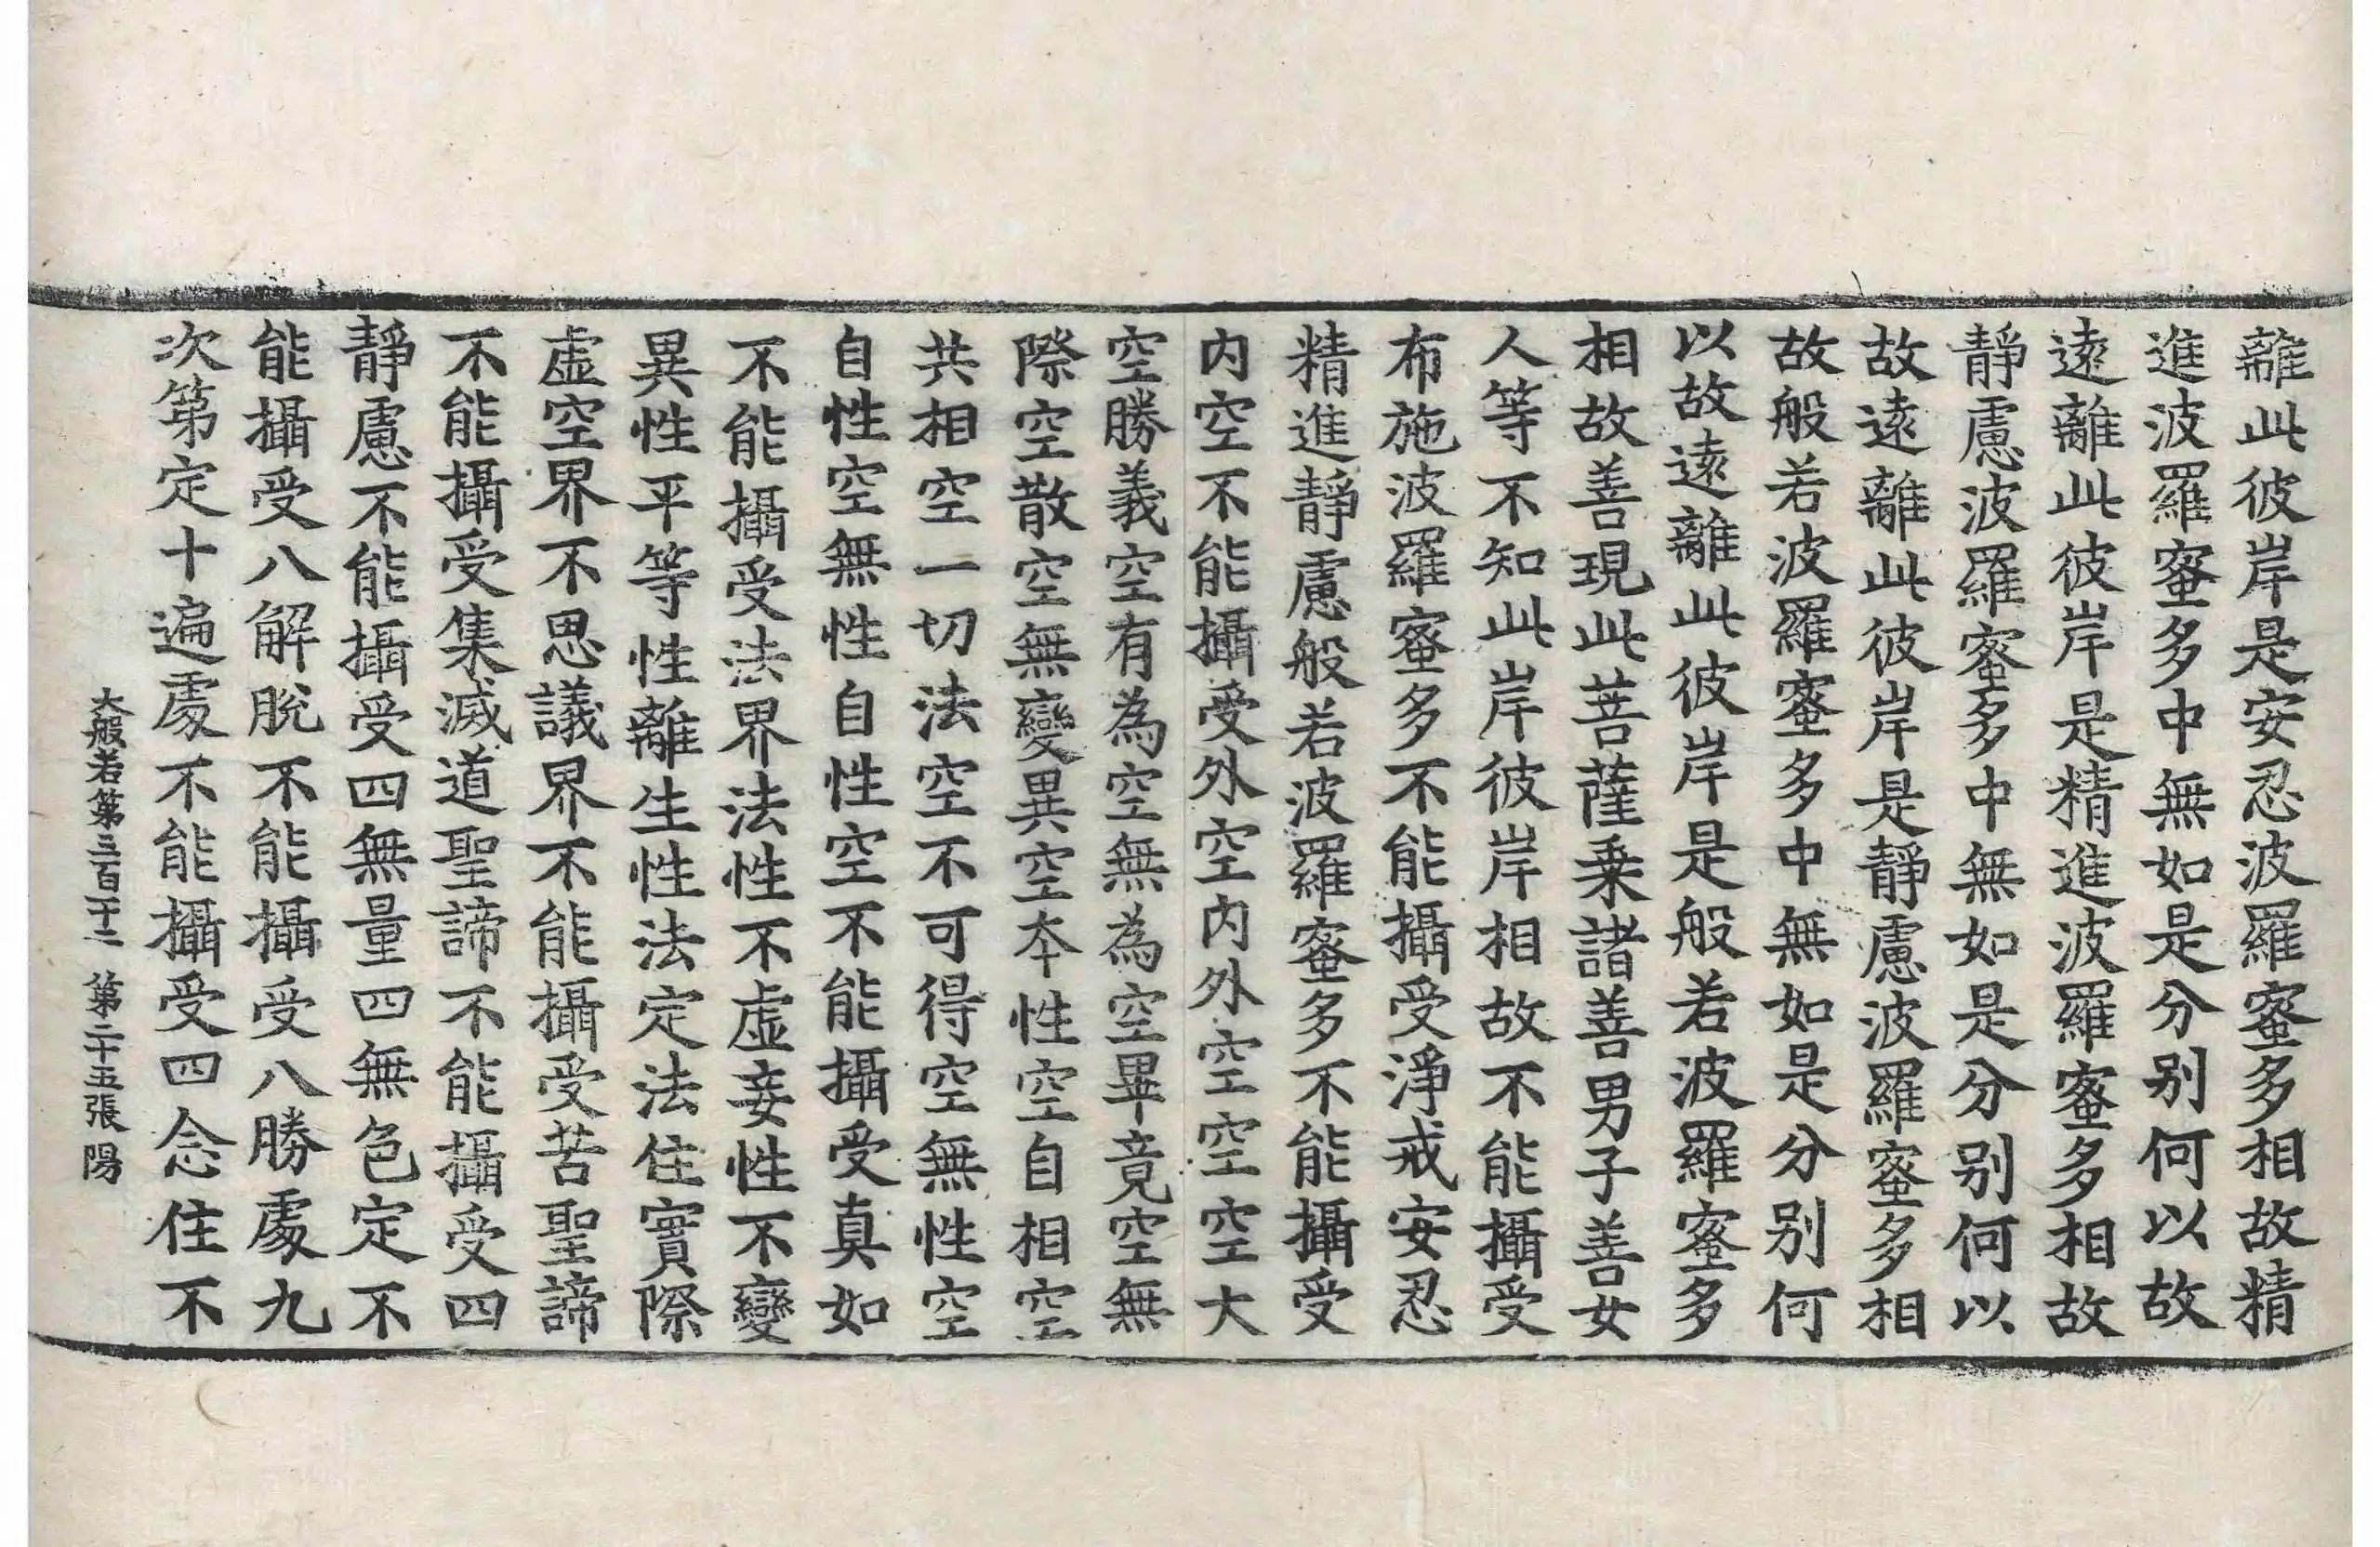 離此彼岸是安忍波羅蜜多相故精
進波羅蜜多中無如是分别何以故
遠離此彼岸是精進波羅蜜多相故
靜慮波羅蜜多中無如是分别何以
故遠離此彼岸是靜慮波羅蜜多相
故般若波羅蜜多中無如是分别何
以故遠離此彼岸是般若波羅蜜多
相故善現此菩薩乗諸善男子善女
人等不知此岸彼岸相故不能攝受
布施波羅蜜多不能攝受淨戒安忍
精進靜慮般若波羅蜜多不能攝受
内空不能攝受外空内外空空空大
空勝義空有為空無為空畢竟空無
際空散空無變異空夲性空自相空
共相空一切法空不可得空無性空
自性空無性自性空不能攝受真如
不能攝受法界法性不虚妄性不變
異性平等性離生性法定法住實際
虚空界不思議界不能攝受苦聖諦
不能攝受集滅道聖諦不能攝受四
靜慮不能攝受四無量四無色定不
能攝受八解脫不能攝受八勝處九
次第定十遍處不能攝受四念住不
大般若第三百二十二 第二十五張 陽